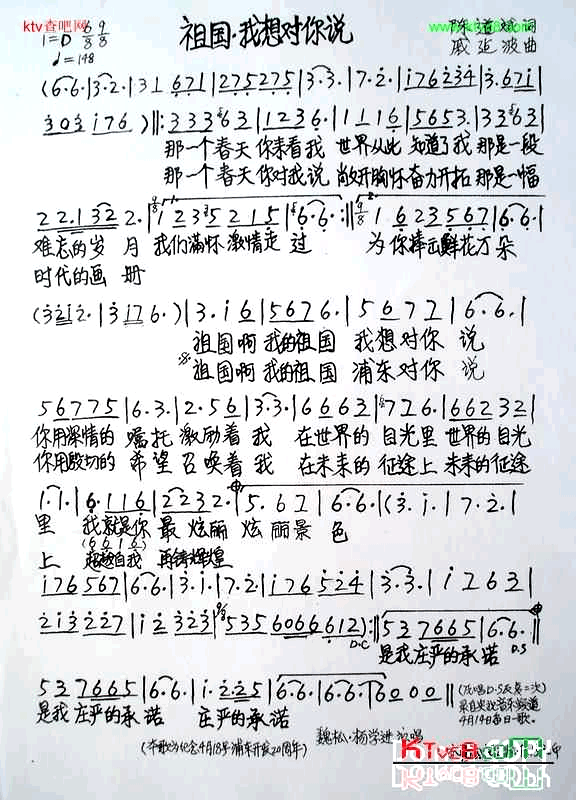 ktv查吧网
www.ktv8.com
1=D 6/8 9/8
♩.=148
祖国·我想对你说
陈道斌 词
戚建波 曲
(6·6·|3·2·|3 1 6 7 1|2 7 5 2 7 5|3·3·|7·2·|1 7 6 2 3 4|3·6 7 1|
3 0 3 1 7 6)‖:3 3 3 6 3|1 2 3 6·|1 1 1 6|5 6 5 3·|3 3 6 3|
那一个春天你来看我 世界从此 知道了我 那是一段
那一个春天你对我说 敞开胸怀奋力开拓 那是一幅
2 2·1 3 2 2·|1 2 3 5 2 1 5|6·6·:‖1 6 2 3 5 6 7|6·6·|
难忘的岁 月 我们满怀激情走 过 为你捧出鲜花万朵
时代的画 册
(3 2 1 2·|3 1 7 6·)|3·1 6|5 6 7 6·|5 6 7 7|6·6·|
祖国啊 我的祖国 我想对你 说
祖国啊 我的祖国 浦东对你 说
5 6 7 7 5|6·3·|2·5 6|3·3·|6 6 6 3|7 2 6·|6 6 2 3 2|
你用深情的 嘱托 激励着我 在世界的 目光里 世界的目光
你用殷切的 希望 召唤着我 在未来的 征途上 未来的征途
1·1·|6·1 1 6|2 2 3 2·|5·6 7|6·6·|(3·1·|7·2·|
里 我就是你 最 炫丽 炫丽景 色
(6 6 1 6)
上 超越自我 再铸辉煌
1 7 6 5 6 7|6·6·|3·1·|7·2|1 7 6 5 2 4|3·3·|1 2 6 3|
2 1 3 2 2 7|1 2 3 2 3|5 3 5 6 0 6 6 6 1 2):‖5 3 7 6 6 5|6·6·‖
D.C
D.S
是我庄严的承 诺
5 3 7 6 6 5|6·6·|1·2 2 5|6·6·|6·6·|6 0 0 0‖
是我庄严的承 诺 庄严的承诺
(反唱D.S反复二次)
4月14日每日一歌。
魏松·杨学进 演唱
(本歌为纪念4月18号浦东开发20周年)
KTv8.com